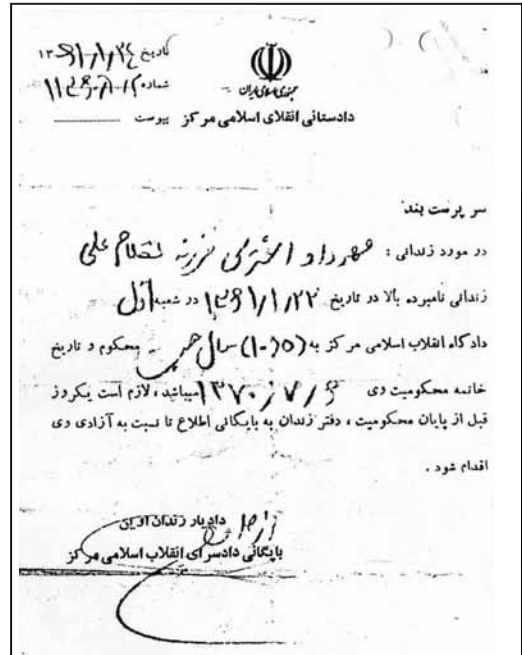 تاریخ ۱۳۶۱/۱/۲۴
شماره
جمهوری اسلامی ایران
دادستانی انقلاب اسلامی مرکز پیوست
سرپرست بند
در مورد زندانی : مهرداد اشتری فرزند غلامعلی
زندانی نامبرده بالا در تاریخ ۱۳۶۱/۱/۲۲ در شعبه اول
دادگاه انقلاب اسلامی مرکز به (۱۰) سال حبس محکوم و تاریخ
خاتمه محکومیت وی ۱۳۷۰/۷/ میباشد ، لازم است یکروز
قبل از پایان محکومیت ، دفتر زندان به بایگانی اطلاع تا نسبت به آزادی وی
اقدام شود .
دادیار زندان اوین
بایگانی دادسرای انقلاب اسلامی مرکز